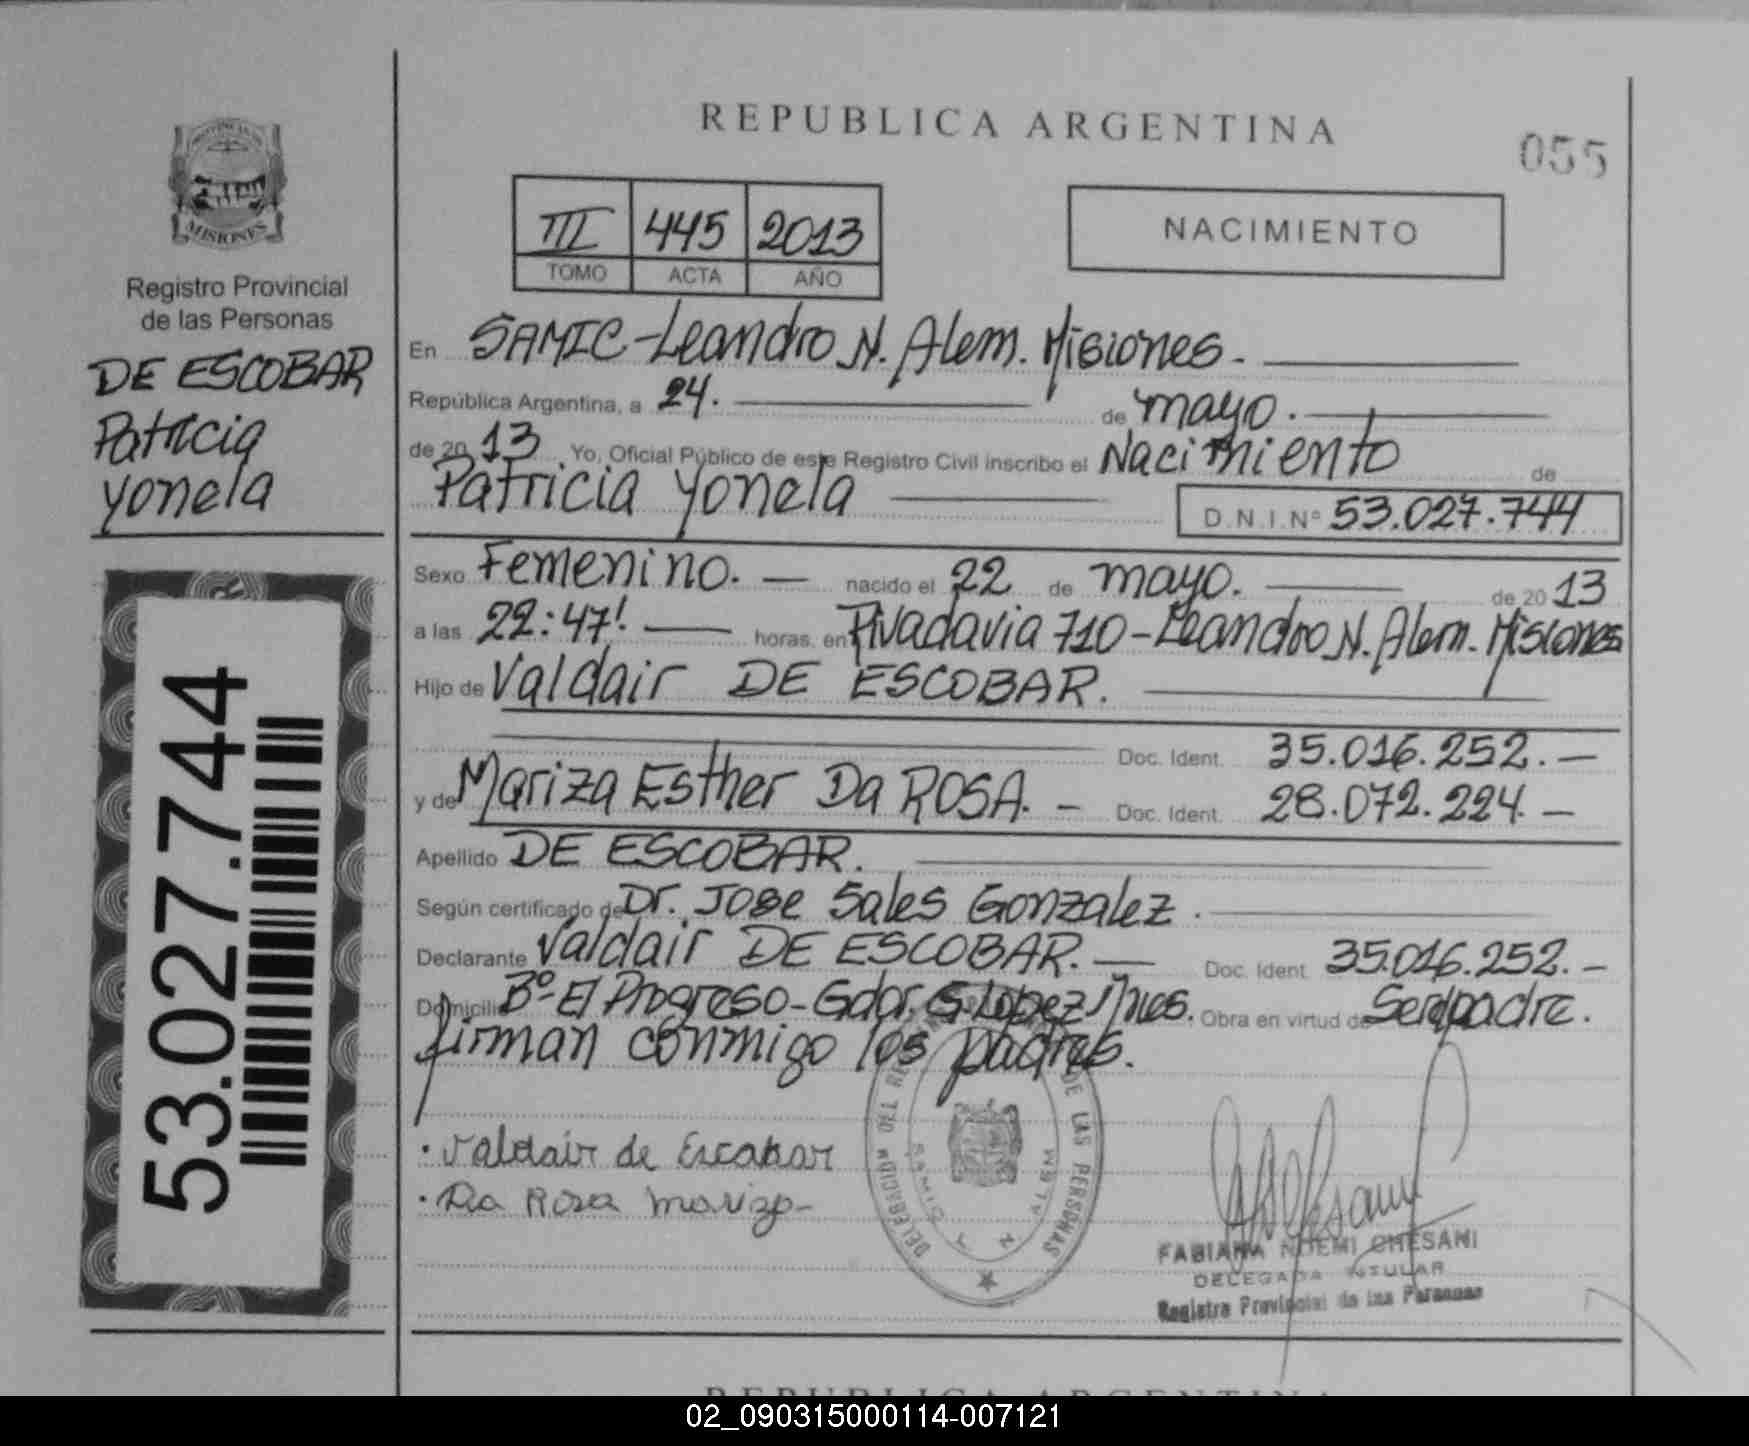 REPUBLICA ARGENTINA
055
PROVINCIA DE
MISIONES
Registro Provincial
de las Personas
DE ESCOBAR
Patricia
Yonela
53.027.744
III 445 2013
TOMO ACTA AÑO
NACIMIENTO
En SAMIC-Leandro N. Alem. Misiones.
República Argentina, a 24. de mayo.
de 2013 Yo, Oficial Público de este Registro Civil inscribo el Nacimiento de
Patricia Yonela D.N.I.Nº 53.027.744
Sexo Femenino. nacido el 22 de mayo. de 2013
a las 22:47! horas. en Rivadavia 710-Leandro N. Alem. Misiones
Hijo de Valdair DE ESCOBAR.
Doc. Ident. 35.016.252.-
y de Mariza Esther Da ROSA.- Doc. Ident. 28.072.224.-
Apellido DE ESCOBAR.
Según certificado de Dr. Jose Sales Gonzalez.
Declarante Valdair DE ESCOBAR.- Doc. Ident. 35.016.252.-
Domicilio Bº El Progreso-Gdor. G. Lopez Mnes. Obra en virtud de Ser padre.
firman conmigo los padres.
DELEGACION DEL REGISTRO DE LAS PERSONAS
SAMIC
L N ALEM
Valdair de Escobar
Da Rosa Mariza-
FABIANA NOEMI CHESANI
DELEGADA TITULAR
Registro Provincial de las Personas
REPUBLICA ARGENTINA
02_090315000114-007121